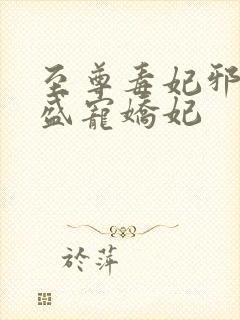 至尊毒妃邪
盛寵嬌妃
於萍